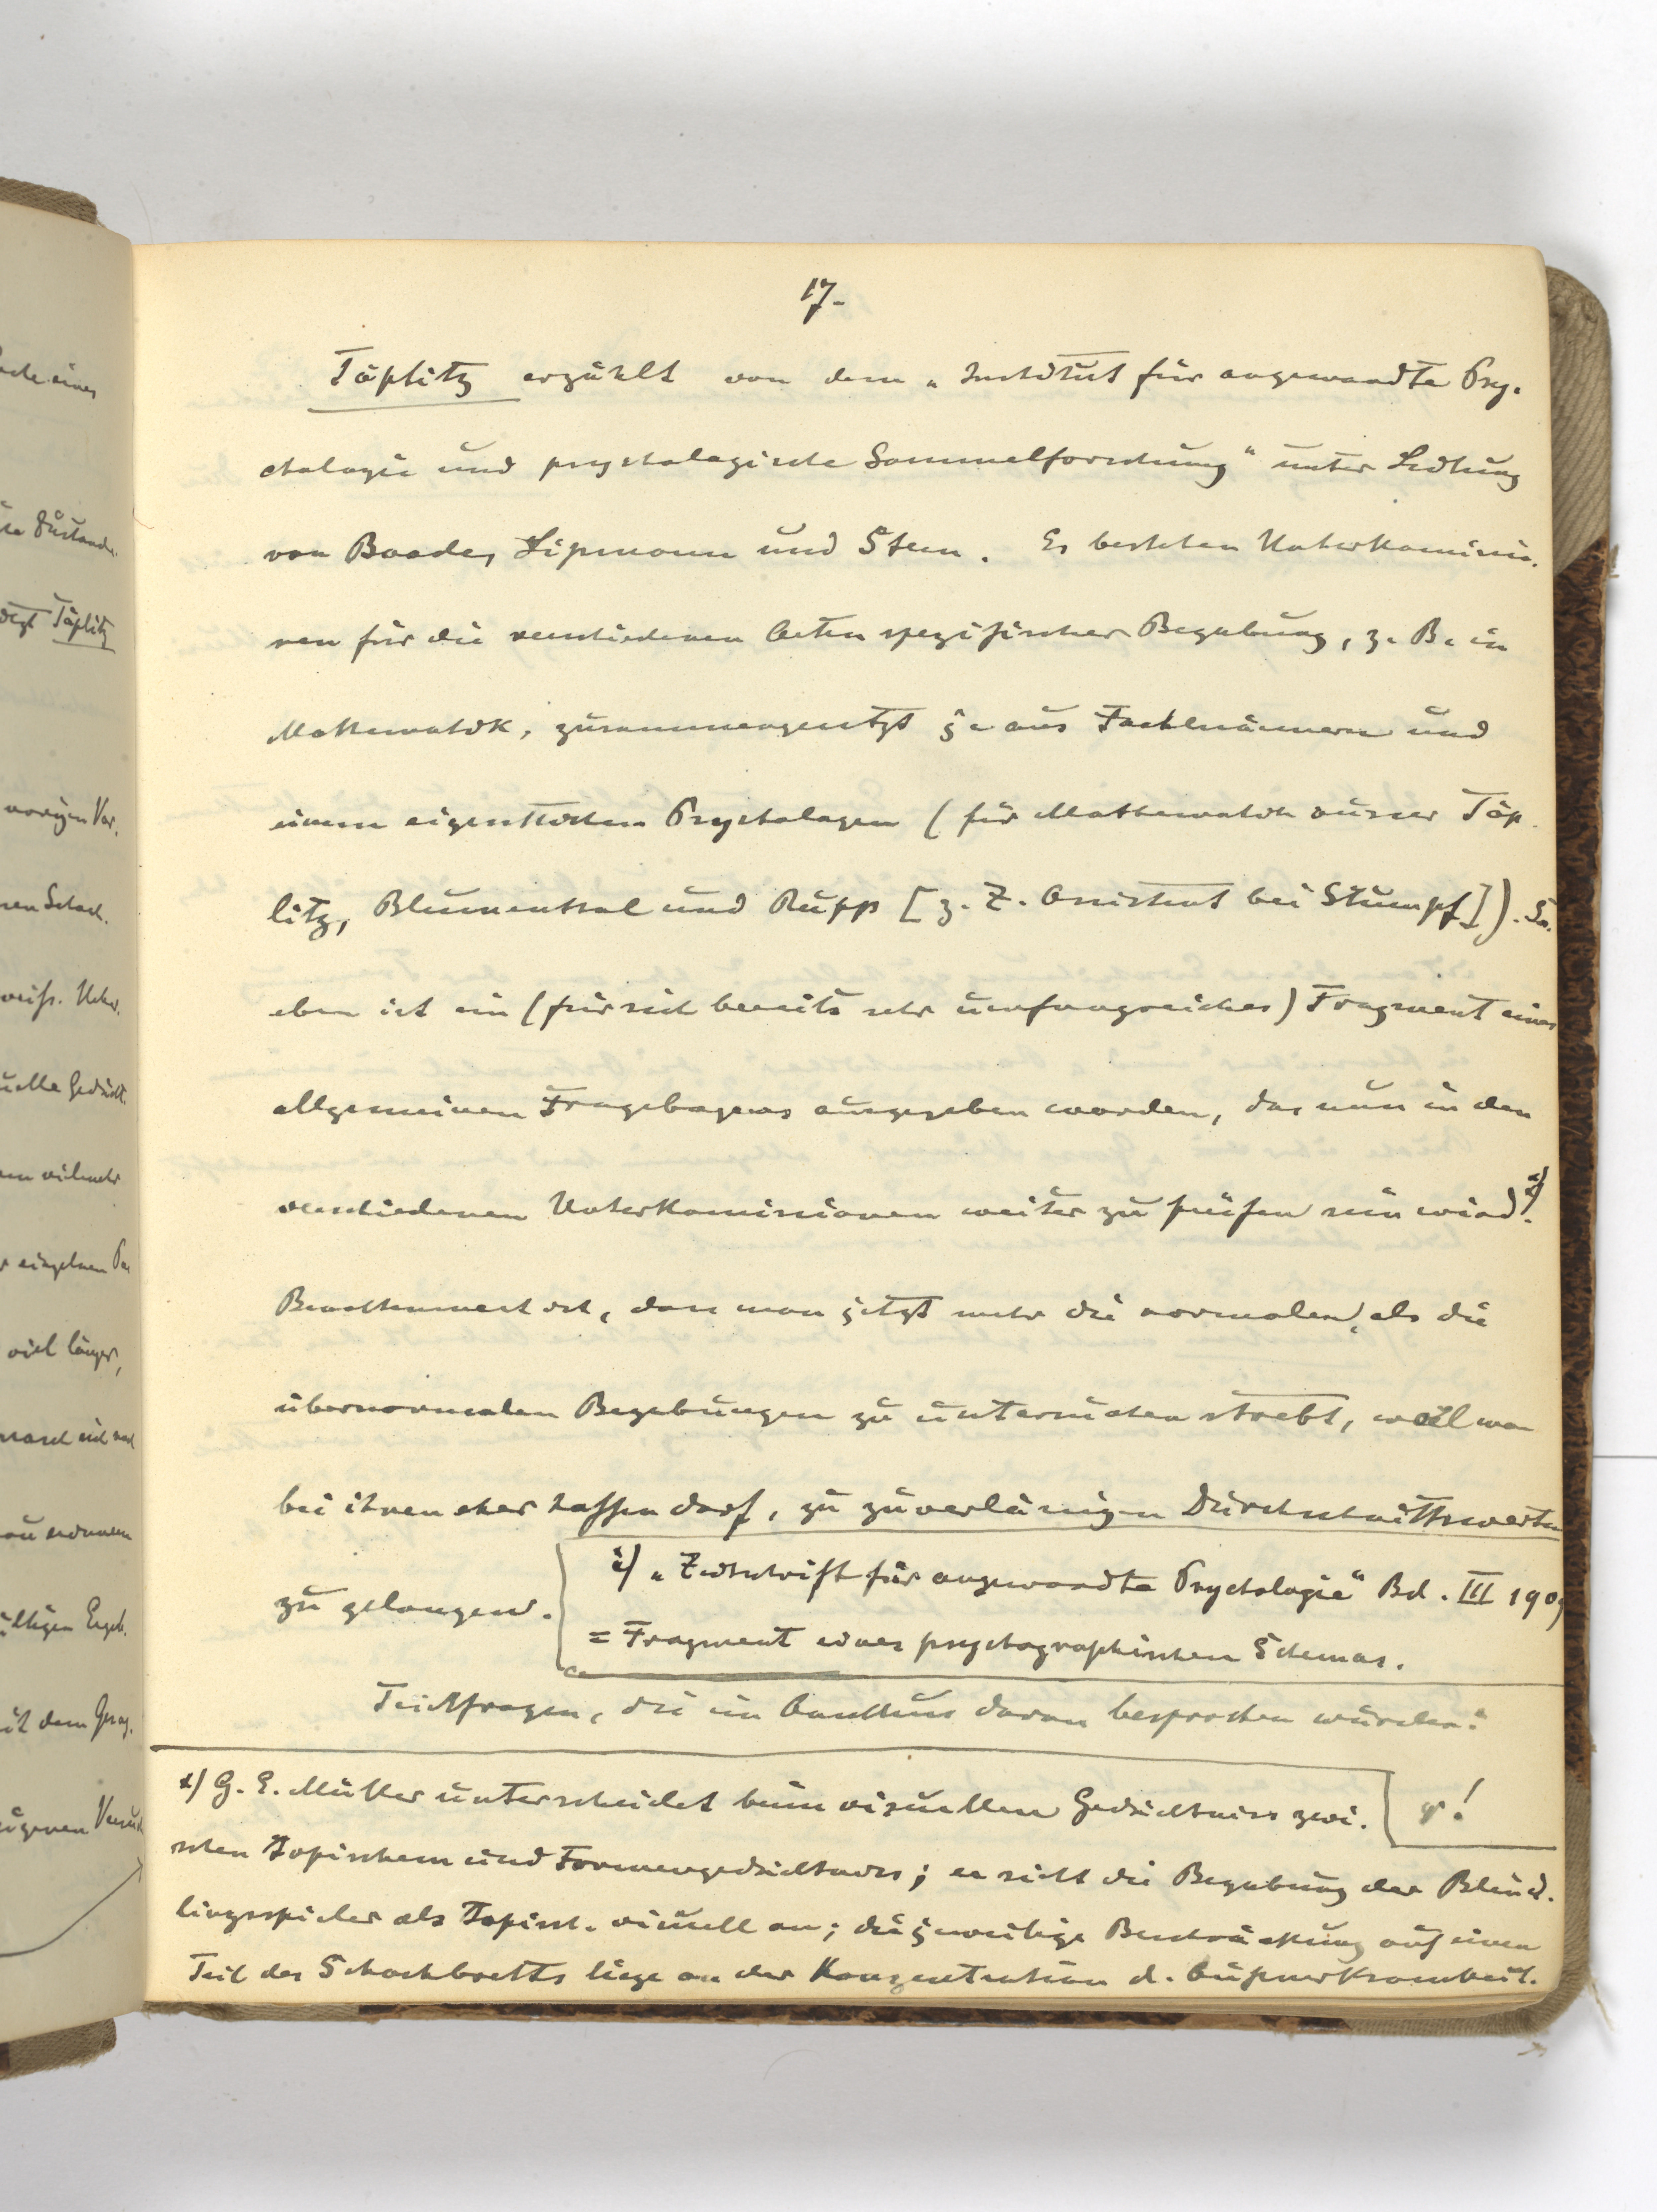 17.
Töplitz erzählt von dem „Institut für angewandte Psy-
chologie und psychologische Sammelforschung“ unter Leitung
von Baade, Lipmann und Stern. Es bestehen Unterkommissio-
nen für die verschiedenen Arten spezifischer Begabung, z. B. in
Mathematik, zusammengesetzt je aus Fachmännern und
einem eigentlichen Psychologen (für Mathematik ausser Töp-
litz, Blumenthal und Rupp [z. Z. Assistent bei Stumpf]). So-
eben ist ein (für sich bereits sehr umfangreiches) Fragment eines
allgemeinen Fragebogens ausgegeben worden, das nun in den
verschiedenen Unterkommissionen weiter zu prüfen sein wird.
Bemerkenswert ist, dass man jetzt mehr die normalen, als die
übernormalen Begabungen zu untersuchen strebt, weil man
bei ihnen eher hoffen darf, zu zuverlässigen Durchschnittswerten
zu gelangen.
1) „Zeitschrift für angewandte Psychologie“ Bd. III 1909
= Fragment eines psychographischen Schemas.
Teilfragen, die im Anschluss daran besprochen wurden:
x) G. E. Müller unterscheidet beim visuellen Gedächtniss zwi-
schen topischem und Formengedächtniss; er sieht die Begabung der Blind-
lingsspieler als topisch-visuell an; die jeweilige Beschränkung auf einen
Teil des Schachbretts liege an der Konzentration d. Aufmerksamkeit.
φ!
Töplitz
vorigen Vor-
nen Schach-
viel länger,